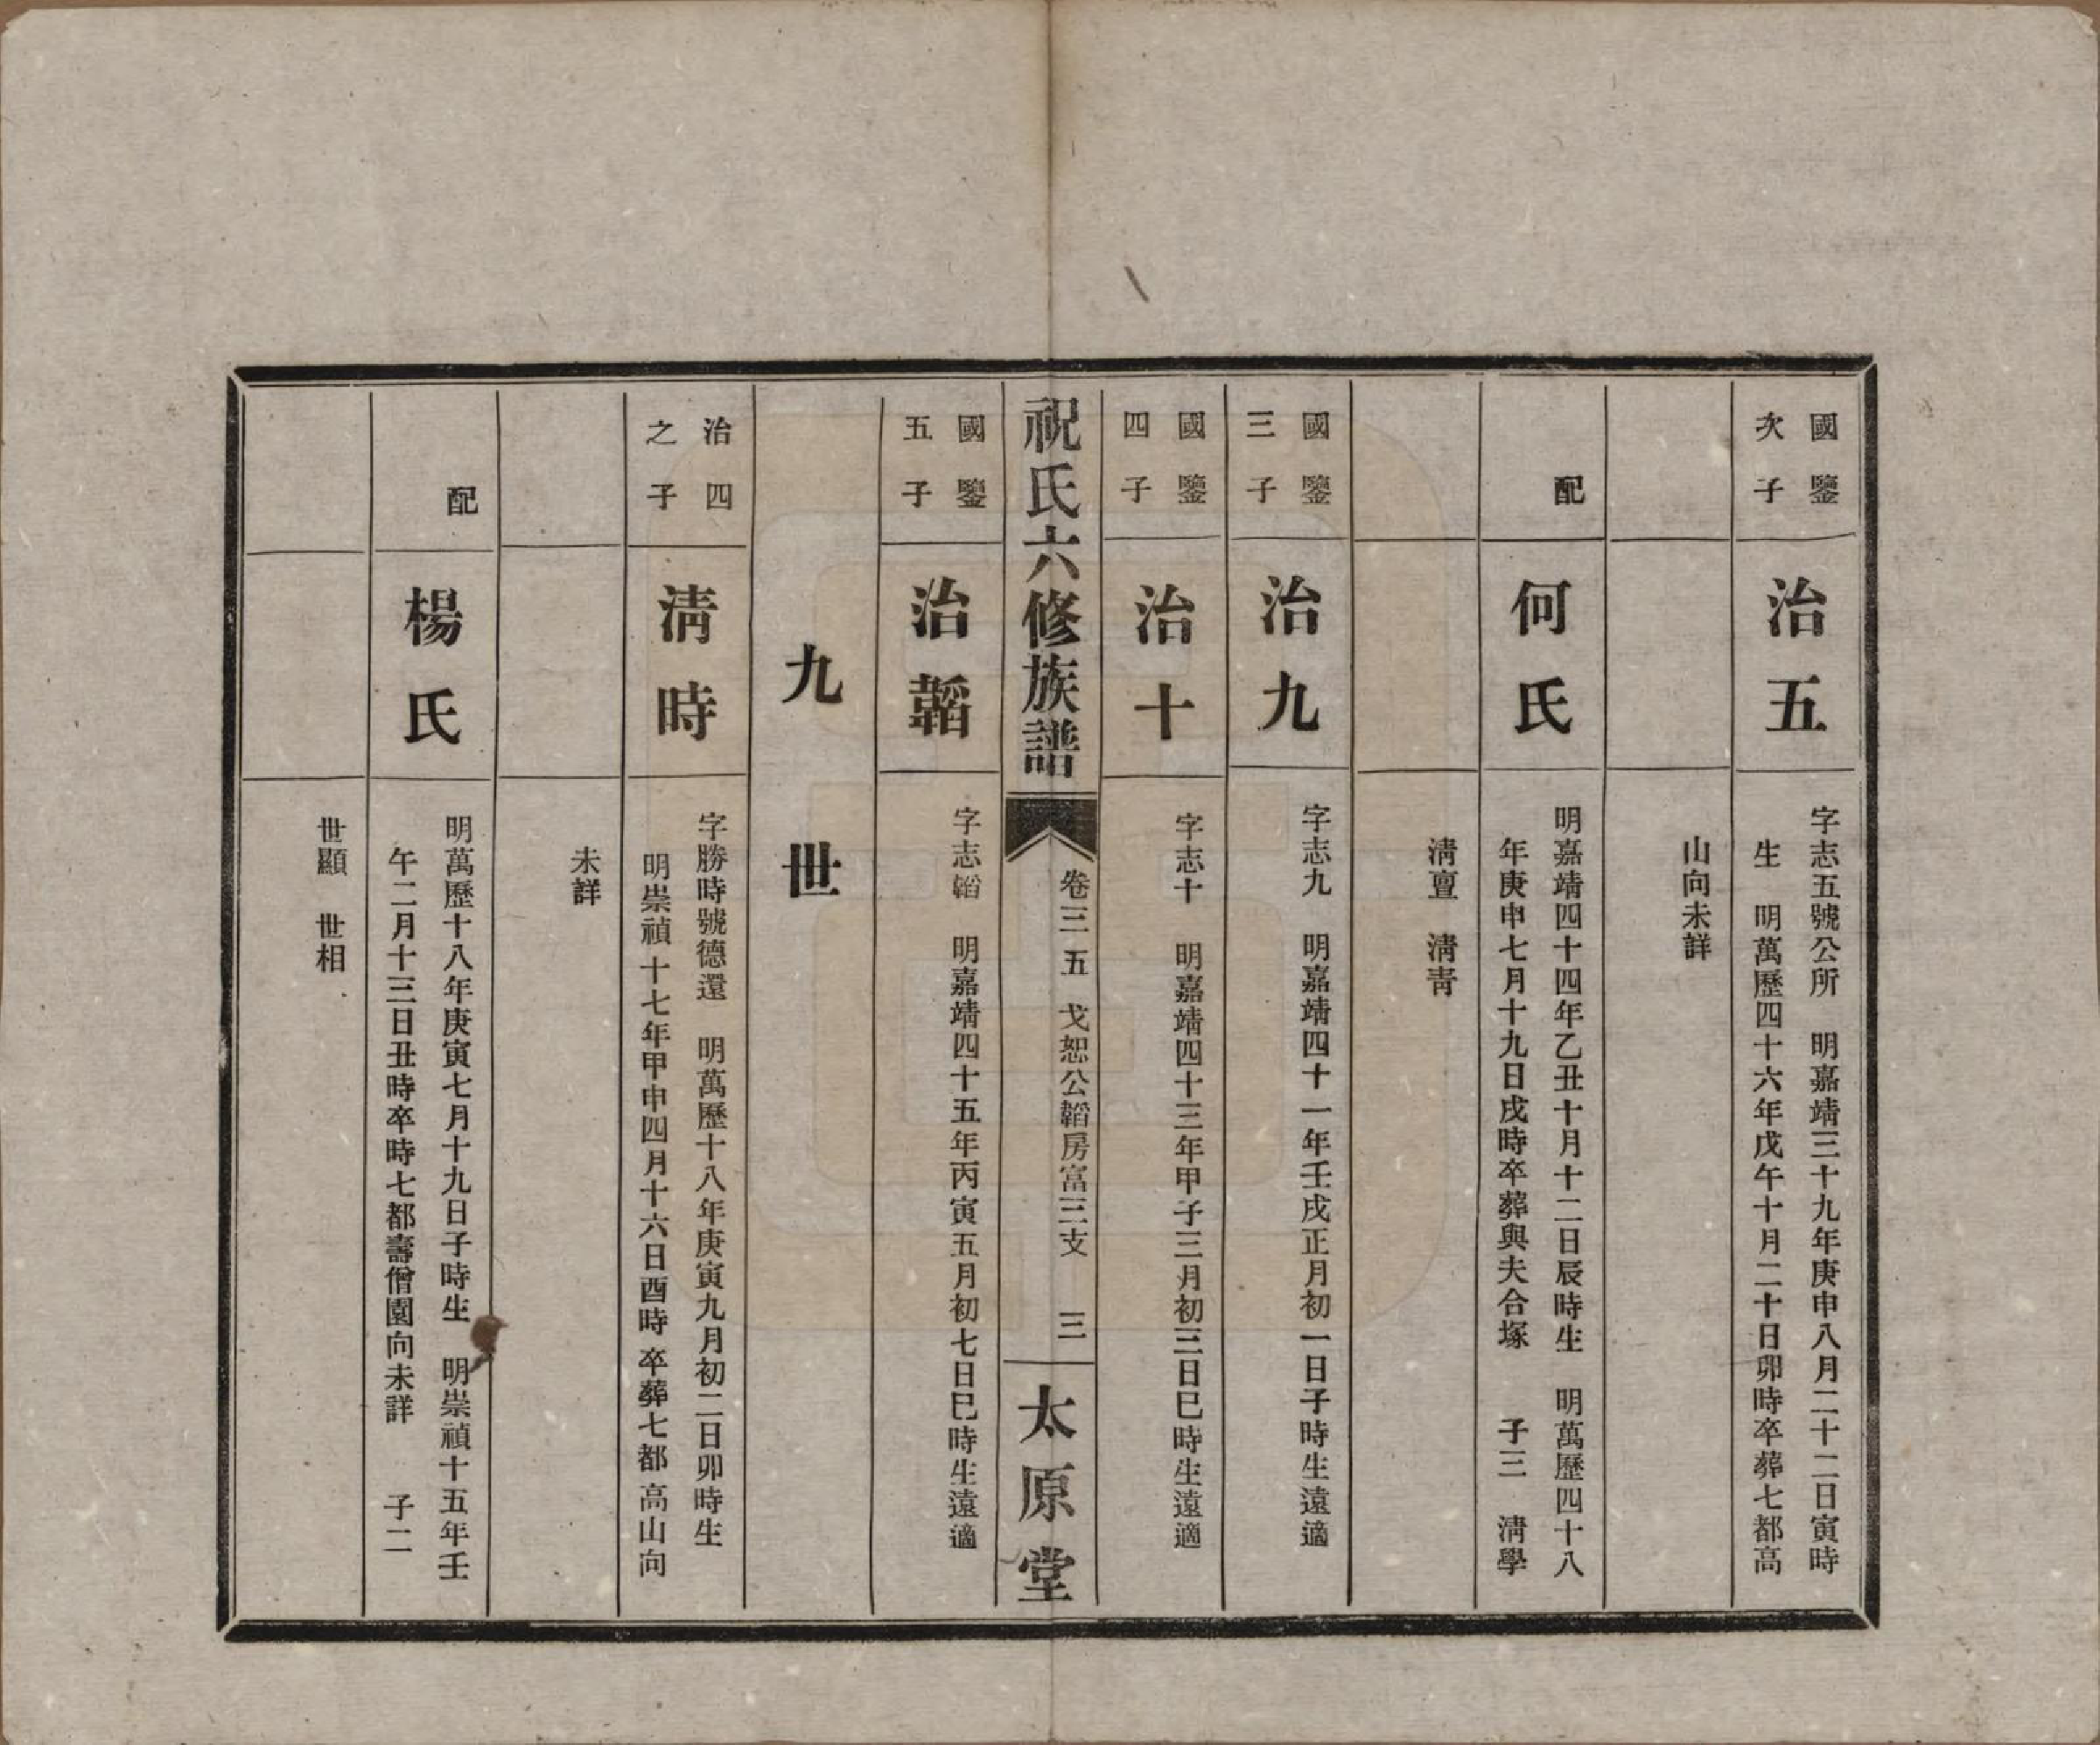 國鑒
次子
治五
字志五號公所　明嘉靖三十九年庚申八月二十二日寅時
生　明萬歷四十六年戊午十月二十日卯時卒葬七都高
山向未詳
配
何氏
明嘉靖四十四年乙丑十月十二日辰時生　明萬歷四十八
年庚申七月十九日戌時卒葬與夫合塚　子三　清學
清亶　清靑
國鑒
三子
治九
字志九　明嘉靖四十一年壬戌正月初一日子時生遠適
國鑒
四子
治十
字志十　明嘉靖四十三年甲子三月初三日巳時生遠適
祝氏六修族譜
卷三五　戈恕公韜房富三支　三
太原堂
國鑒
五子
治韜
字志韜　明嘉靖四十五年丙寅五月初七日巳時生遠適
九世
治四
之子
清時
字勝時號德還　明萬歷十八年庚寅九月初二日卯時生
明崇禎十七年甲申四月十六日酉時卒葬七都高山向
未詳
配
楊氏
明萬歷十八年庚寅七月十九日子時生　明崇禎十五年壬
午二月十三日丑時卒時七都壽僧園向未詳　子二
世顯　世相